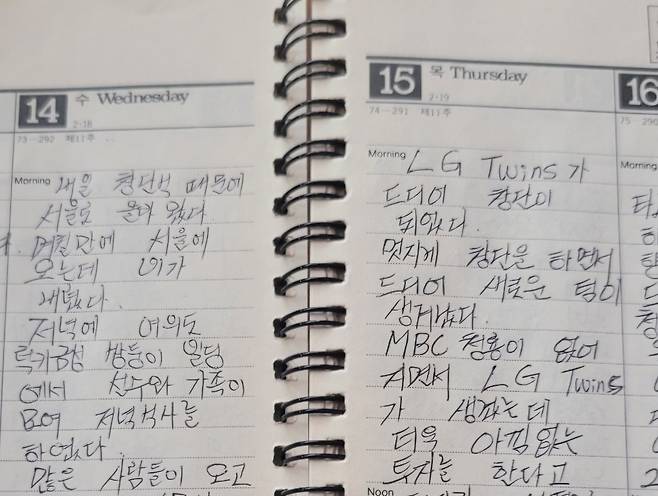 14 수 Wednesday
2·18
73-292 제11주
Morning 내일 창단식 때문에
서울로 올라 왔다
며칠만에 서울에
오는데 비가
내렸다.
저녁에 여의도
럭키금성 쌍둥이 빌딩
에서 선수와 가족이
모여 저녁식사를
하였다.
많은 사람들이 오고
15 목 Thursday
2·19
74-291 제11주
Morning LG Twins가
드디어 창단이
되었다.
멋지게 창단을 하면서
드디어 새로운 팀이
생겨났다.
MBC 청룡이 없어
지면서 LG Twins
가 생겼는데
더욱 아낌없는
투자를 한다고
Noon
16
75 290
Morning